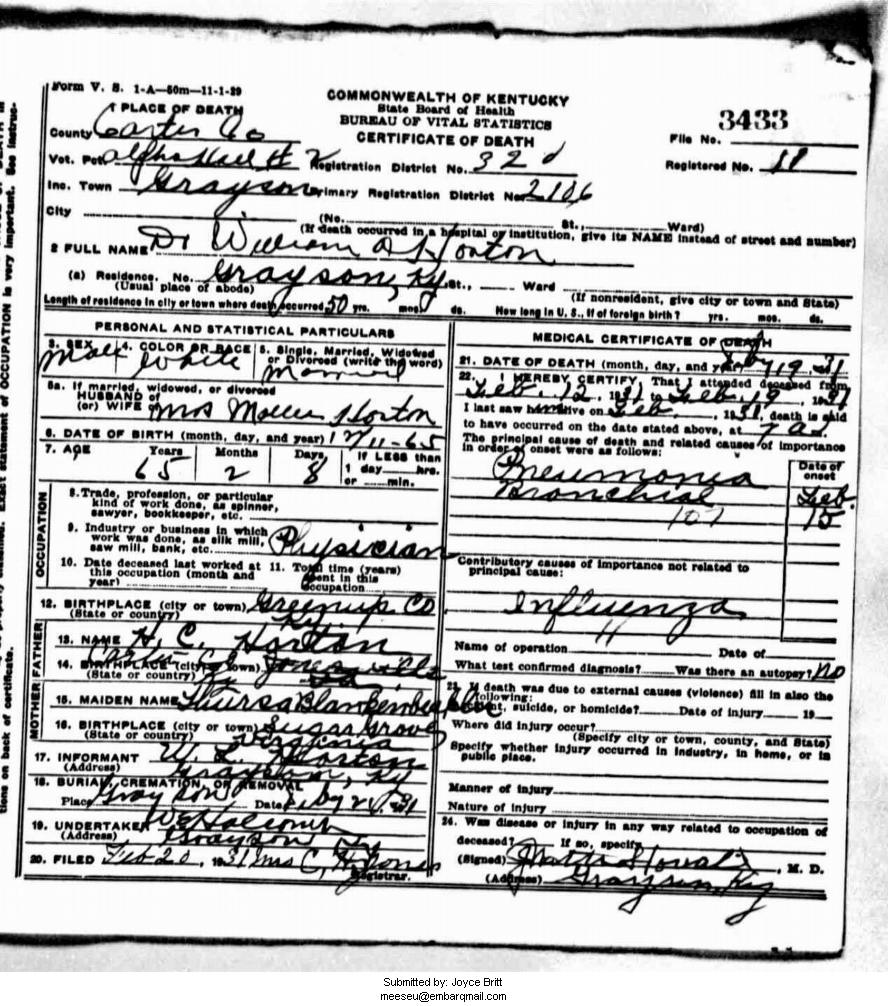 Form V. S. 1-A—50m—11-1-29
COMMONWEALTH OF KENTUCKY
State Board of Health
BUREAU OF VITAL STATISTICS
CERTIFICATE OF DEATH
3433
File No.
Registered No. 18
1 PLACE OF DEATH
County Carter Co
Vot. Pct.
Registration District No. 32
Inc. Town Grayson Primary Registration District No. 2106
City (No. St., Ward)
(If death occurred in a hospital or institution, give its NAME instead of street and number)
2 FULL NAME Dr William A Horton
(a) Residence. No. Grayson, Ky. St., Ward
(Usual place of abode) (If nonresident, give city or town and State)
Length of residence in city or town where death occurred 50 yrs. mos. ds. How long in U. S., if of foreign birth? yrs. mos. ds.
PERSONAL AND STATISTICAL PARTICULARS
3. SEX 4. COLOR OR RACE 5. Single, Married, Widowed
or Divorced (write the word)
Male White Married
5a. If married, widowed, or divorced
HUSBAND of
(or) WIFE of Mrs Horton
6. DATE OF BIRTH (month, day, and year) 12/11-65
7. AGE Years Months Days If LESS than
1 day hrs.
or min.
65 2 8
OCCUPATION
8. Trade, profession, or particular
kind of work done, as spinner,
sawyer, bookkeeper, etc.
9. Industry or business in which
work was done, as silk mill,
saw mill, bank, etc. Physician
10. Date deceased last worked at 11. Total time (years)
this occupation (month and spent in this
year) occupation
12. BIRTHPLACE (city or town) Greenup Co
(State or country) Ky
FATHER
13. NAME H. C. Horton
14. BIRTHPLACE (city or town)
(State or country)
MOTHER
15. MAIDEN NAME
16. BIRTHPLACE (city or town) Sugar Grove
(State or country) Virginia
17. INFORMANT W. L. Horton
(Address) Grayson, Ky
18. BURIAL, CREMATION, OR REMOVAL
Place Grayson Date
19. UNDERTAKER
(Address) Grayson, Ky
20. FILED Feb 20, 1931 Mrs C. H. Jones
Registrar.
MEDICAL CERTIFICATE OF DEATH
21. DATE OF DEATH (month, day, and year) Feb 19, 31
22. I HEREBY CERTIFY, That I attended deceased from
Feb. 12, 1931 to Feb. 19, 1931
I last saw him alive on Feb. , 1931, death is said
to have occurred on the date stated above, at
The principal cause of death and related causes of importance
in order of onset were as follows:
Date of
onset
Pneumonia
Bronchial Feb.
107 15
Contributory causes of importance not related to
principal cause:
Influenza
11
Name of operation Date of
What test confirmed diagnosis? Was there an autopsy? No
23. If death was due to external causes (violence) fill in also the
following:
Accident, suicide, or homicide? Date of injury 19
Where did injury occur?
(Specify city or town, county, and State)
Specify whether injury occurred in industry, in home, or in
public place.
Manner of injury
Nature of injury
24. Was disease or injury in any way related to occupation of
deceased? If so, specify
(Signed) , M. D.
(Address) Grayson, Ky
Submitted by: Joyce Britt
meeseu@embarqmail.com